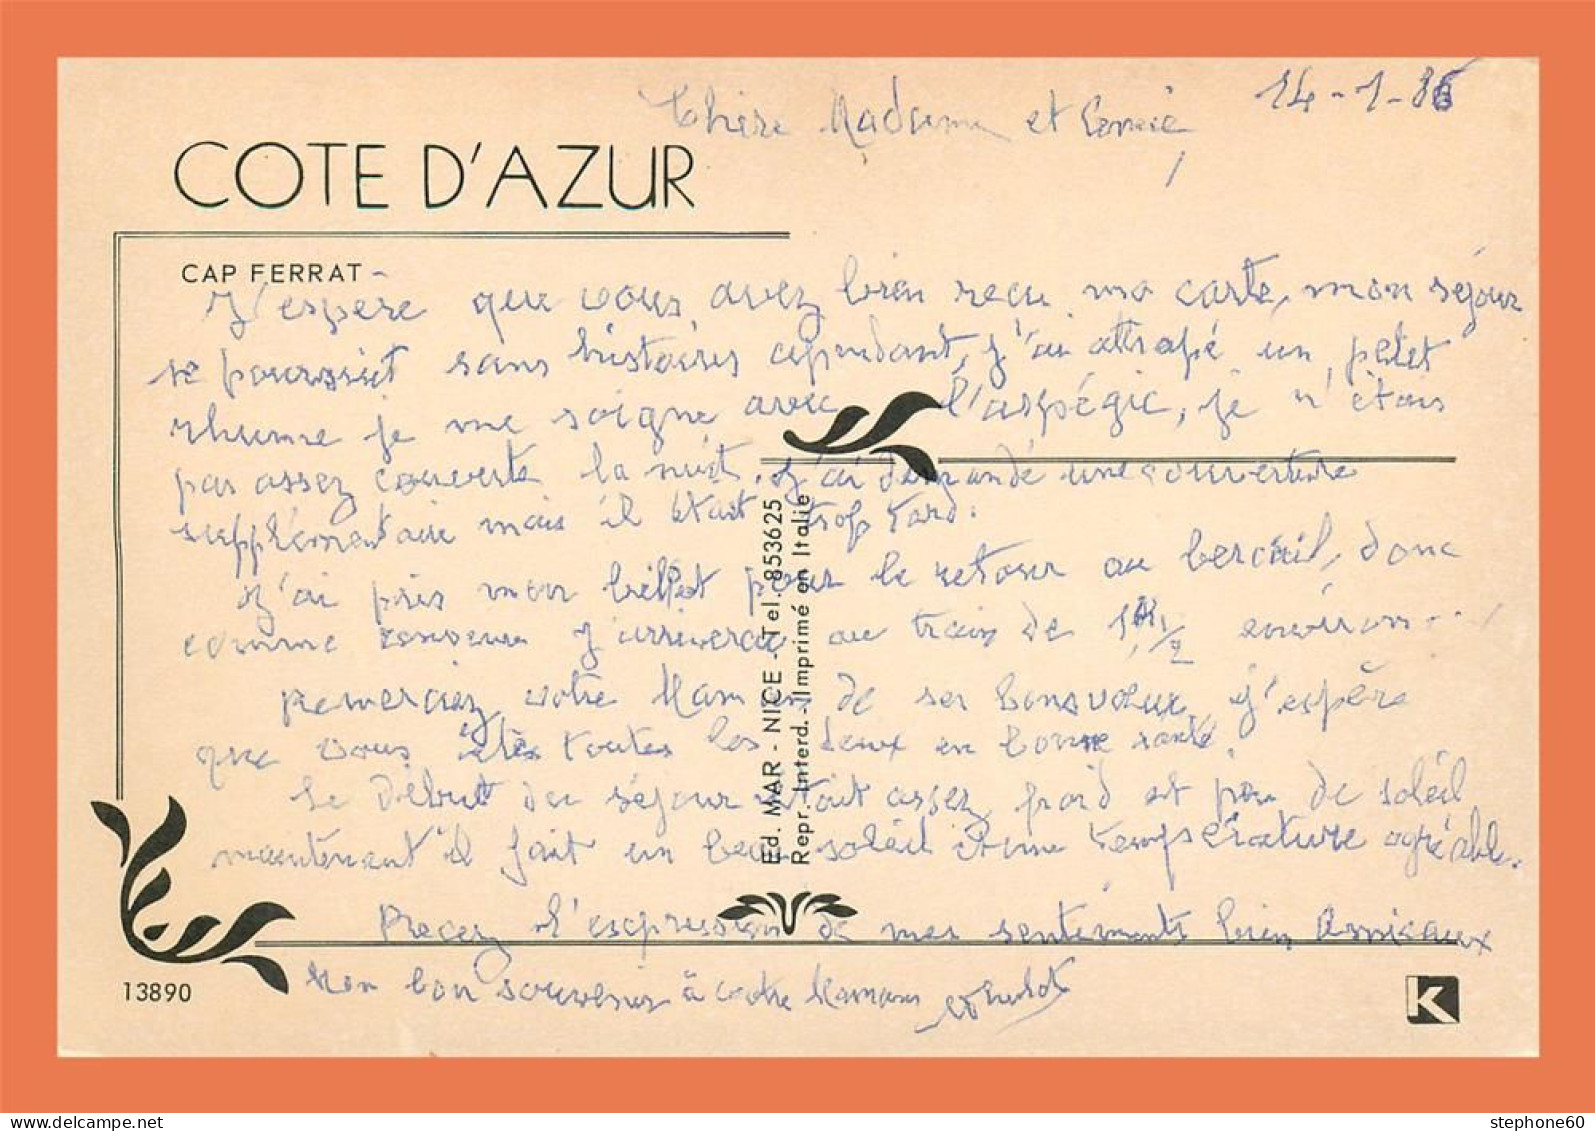 14-1-86
Chère Madame et Amie,
COTE D'AZUR
CAP FERRAT -
J'espère que vous avez bien reçu ma carte, mon séjour
se poursuit sans histoires cependant, j'ai attrapé un petit
rhume je me soigne avec l'aspégic, je n'étais
pas assez couverte la nuit. J'ai demandé une couverture
supplémentaire mais il était trop tard.
J'ai pris mon billet pour le retour au bercail, donc
comme convenu j'arriverai au train de 1/2 environ...
Remerciez votre Maman de ses bons voeux, j'espère
que vous êtes toutes les deux en bonne santé.
Le Début du séjour était assez froid et peu de soleil
maintenant il fait un beau soleil et une température agréable.
Recevez l'expression de mes sentiments bien Amicaux
Mon bon souvenir à votre Maman
Ed. MAR - NICE - Tel. 853625
Repr. Interd. - Imprimé en Italie
13890
K
stephone60